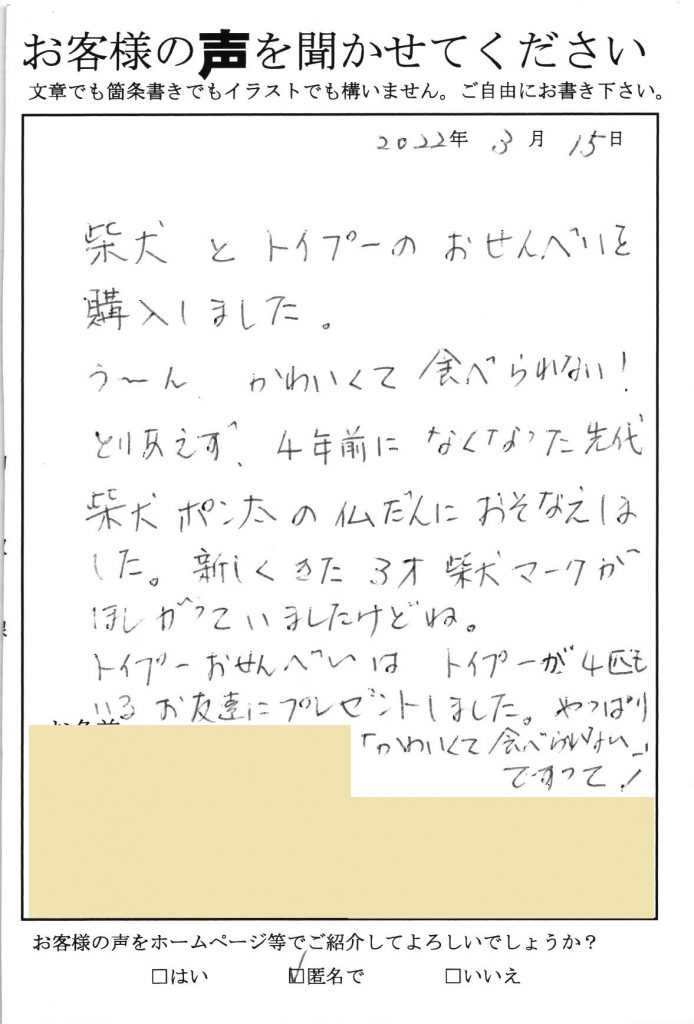 お客様の声を聞かせてください
文章でも箇条書きでもイラストでも構いません。ご自由にお書き下さい。
2022年 3月 15日
柴犬 と トイプーの おせんべいを
購入しました。
う〜ん かわいくて 食べられない!
とりあえず、4年前に なくなった先代
柴犬 ポン太 の 仏だんに おそなえしま
した。新しくきた 3才 柴犬マークが
ほしがっていましたけどね。
トイプーおせんべいは トイプーが4匹も
いる お友達にプレゼントしました。やっぱり
「かわいくて食べられない」
ですって!
お客様の声をホームページ等でご紹介してよろしいでしょうか?
□はい ☑匿名で □いいえ